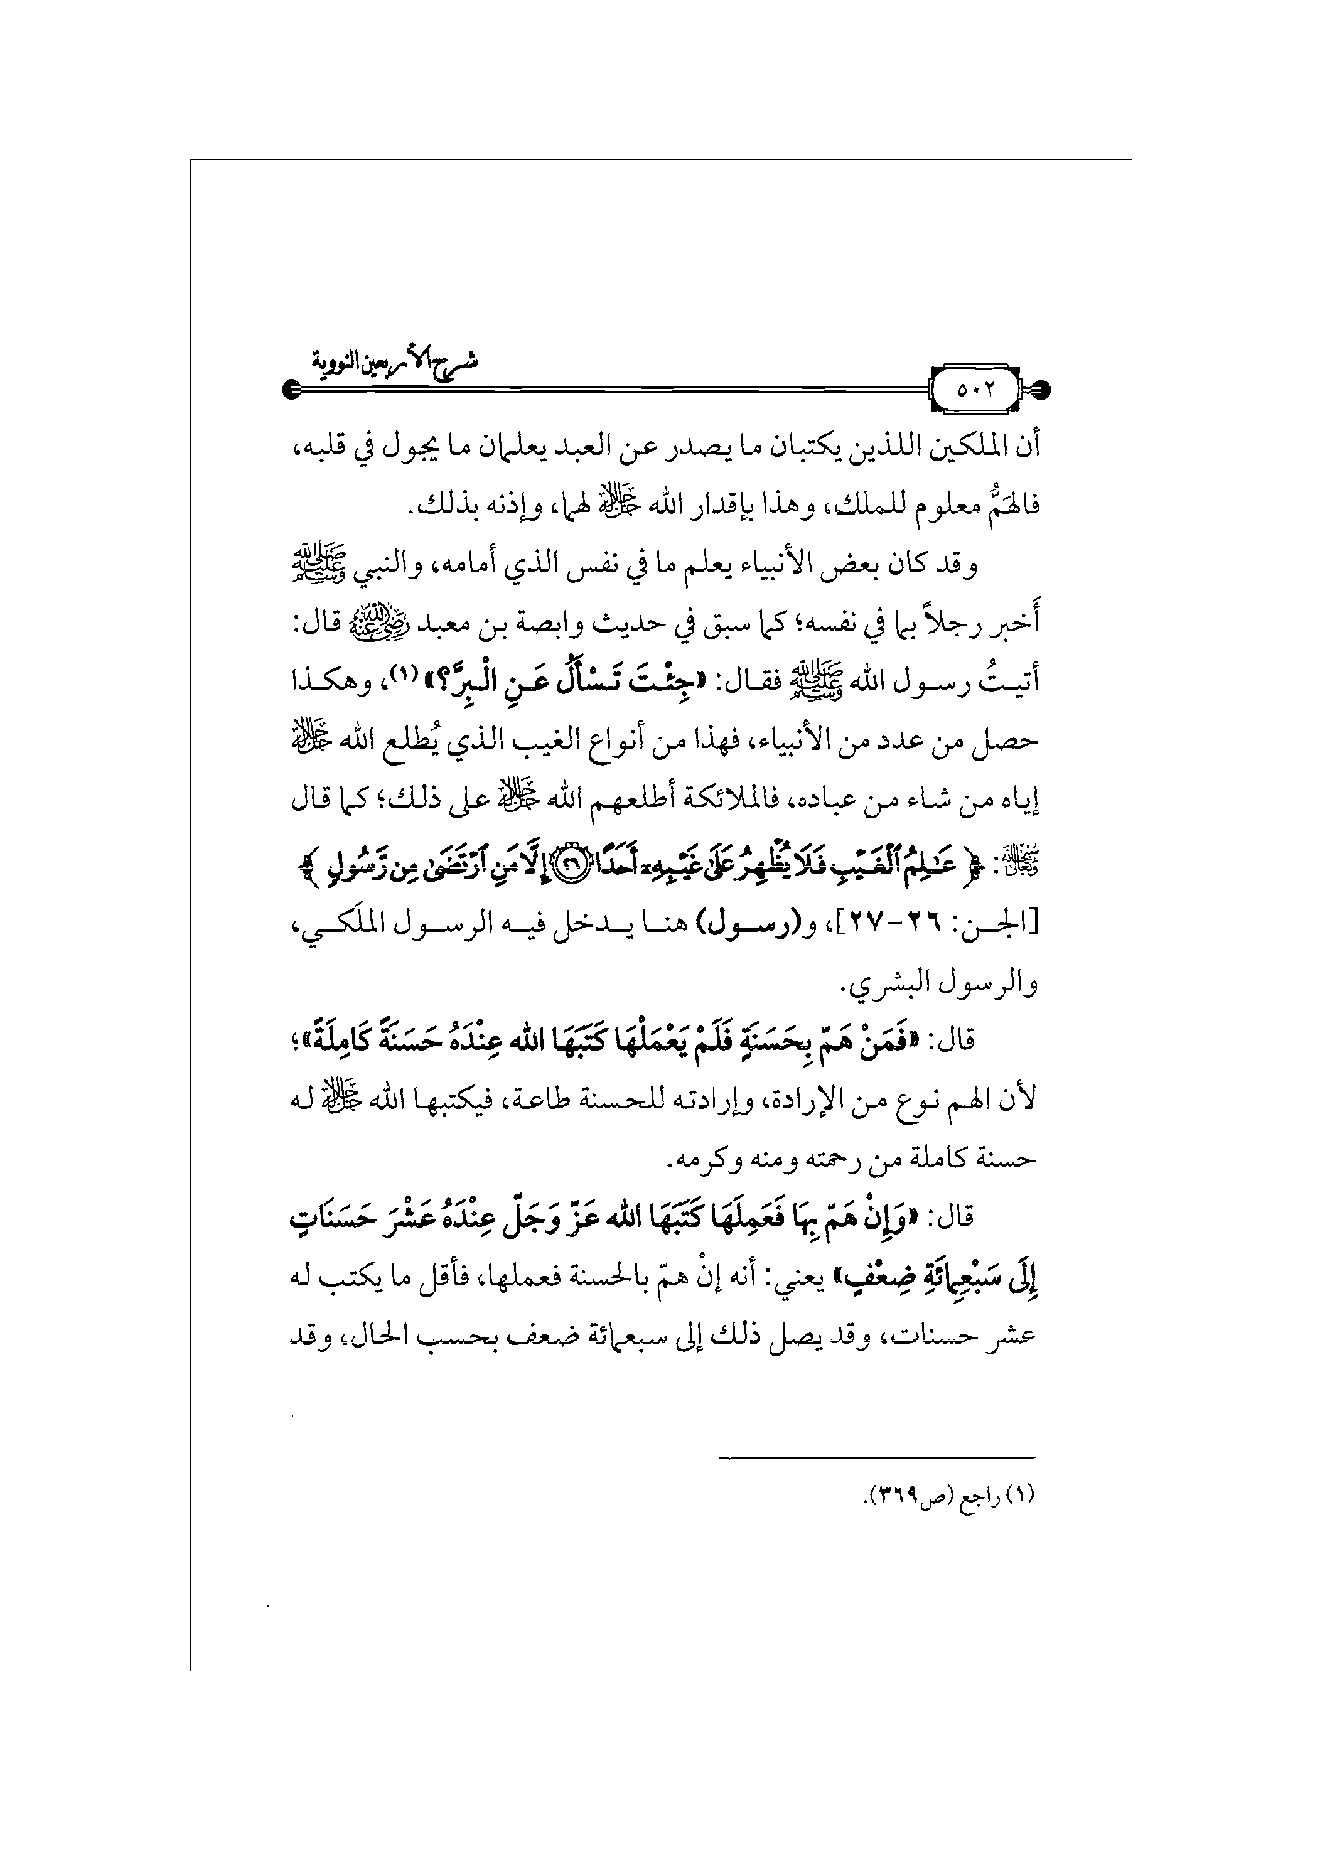 شرح الأربعين النووية
٥٠٢
أن الملكين اللذين يكتبان ما يصدر عن العبد يعلمان ما يجول في قلبه،
فالهَمُّ معلوم للملك، وهذا بإقدار الله ﷻ لهما، وإذنه بذلك.
وقد كان بعض الأنبياء يعلم ما في نفس الذي أمامه، والنبي ﷺ
أَخبر رجلاً بما في نفسه؛ كما سبق في حديث وابصة بن معبد رضي الله عنه قال:
أتيتُ رسول الله ﷺ فقال: «جِئْتَ تَسْأَلُ عَنِ الْبِرِّ؟»(١)، وهكذا
حصل من عدد من الأنبياء، فهذا من أنواع الغيب الذي يُطلع الله ﷻ
إياه من شاء من عباده، فالملائكة أطلعهم الله ﷻ على ذلك؛ كما قال
: ﴿عَٰلِمُ ٱلْغَيْبِ فَلَا يُظْهِرُ عَلَىٰ غَيْبِهِۦٓ أَحَدًا ٢٦ إِلَّا مَنِ ٱرْتَضَىٰ مِن رَّسُولٍ﴾
[الجن: ٢٦-٢٧]، و(رسول) هنا يدخل فيه الرسول الملَكي،
والرسول البشري.
قال: «فَمَنْ هَمّ بِحَسَنَةٍ فَلَمْ يَعْمَلْهَا كَتَبَهَا الله عِنْدَهُ حَسَنَةً كَامِلَةً»؛
لأن الهم نوع من الإرادة، وإرادته للحسنة طاعة، فيكتبها الله ﷻ له
حسنة كاملة من رحمته ومنه وكرمه.
قال: «وَإِنْ هَمّ بِهَا فَعَمِلَهَا كَتَبَهَا الله عَزّ وَجَلّ عِنْدَهُ عَشْرَ حَسَنَاتٍ
إِلَى سَبْعِمِائَةِ ضِعْفٍ» يعني: أنه إنْ همّ بالحسنة فعملها، فأقل ما يكتب له
عشر حسنات، وقد يصل ذلك إلى سبعمائة ضعف بحسب الحال، وقد
(١) راجع (ص٣٦٩).